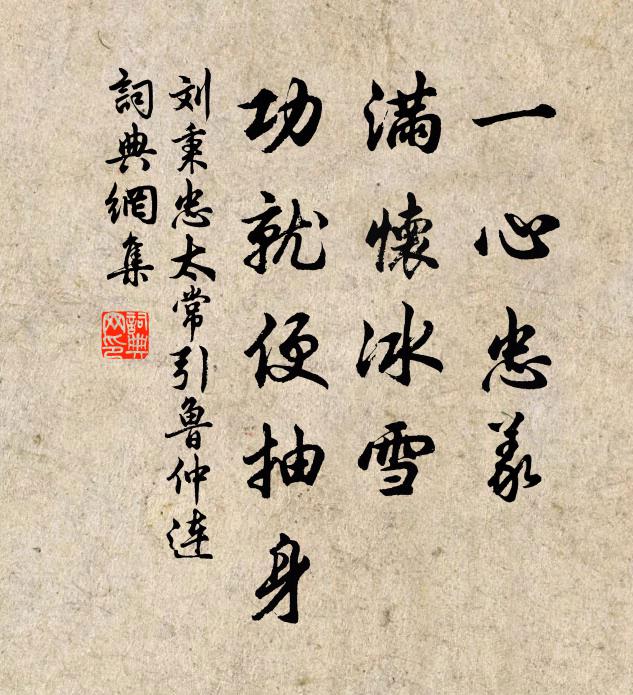 一心忠義
滿懷冰雪
功就便抽身
刘秉忠太常引魯仲连
詞典網集
詞典
网印